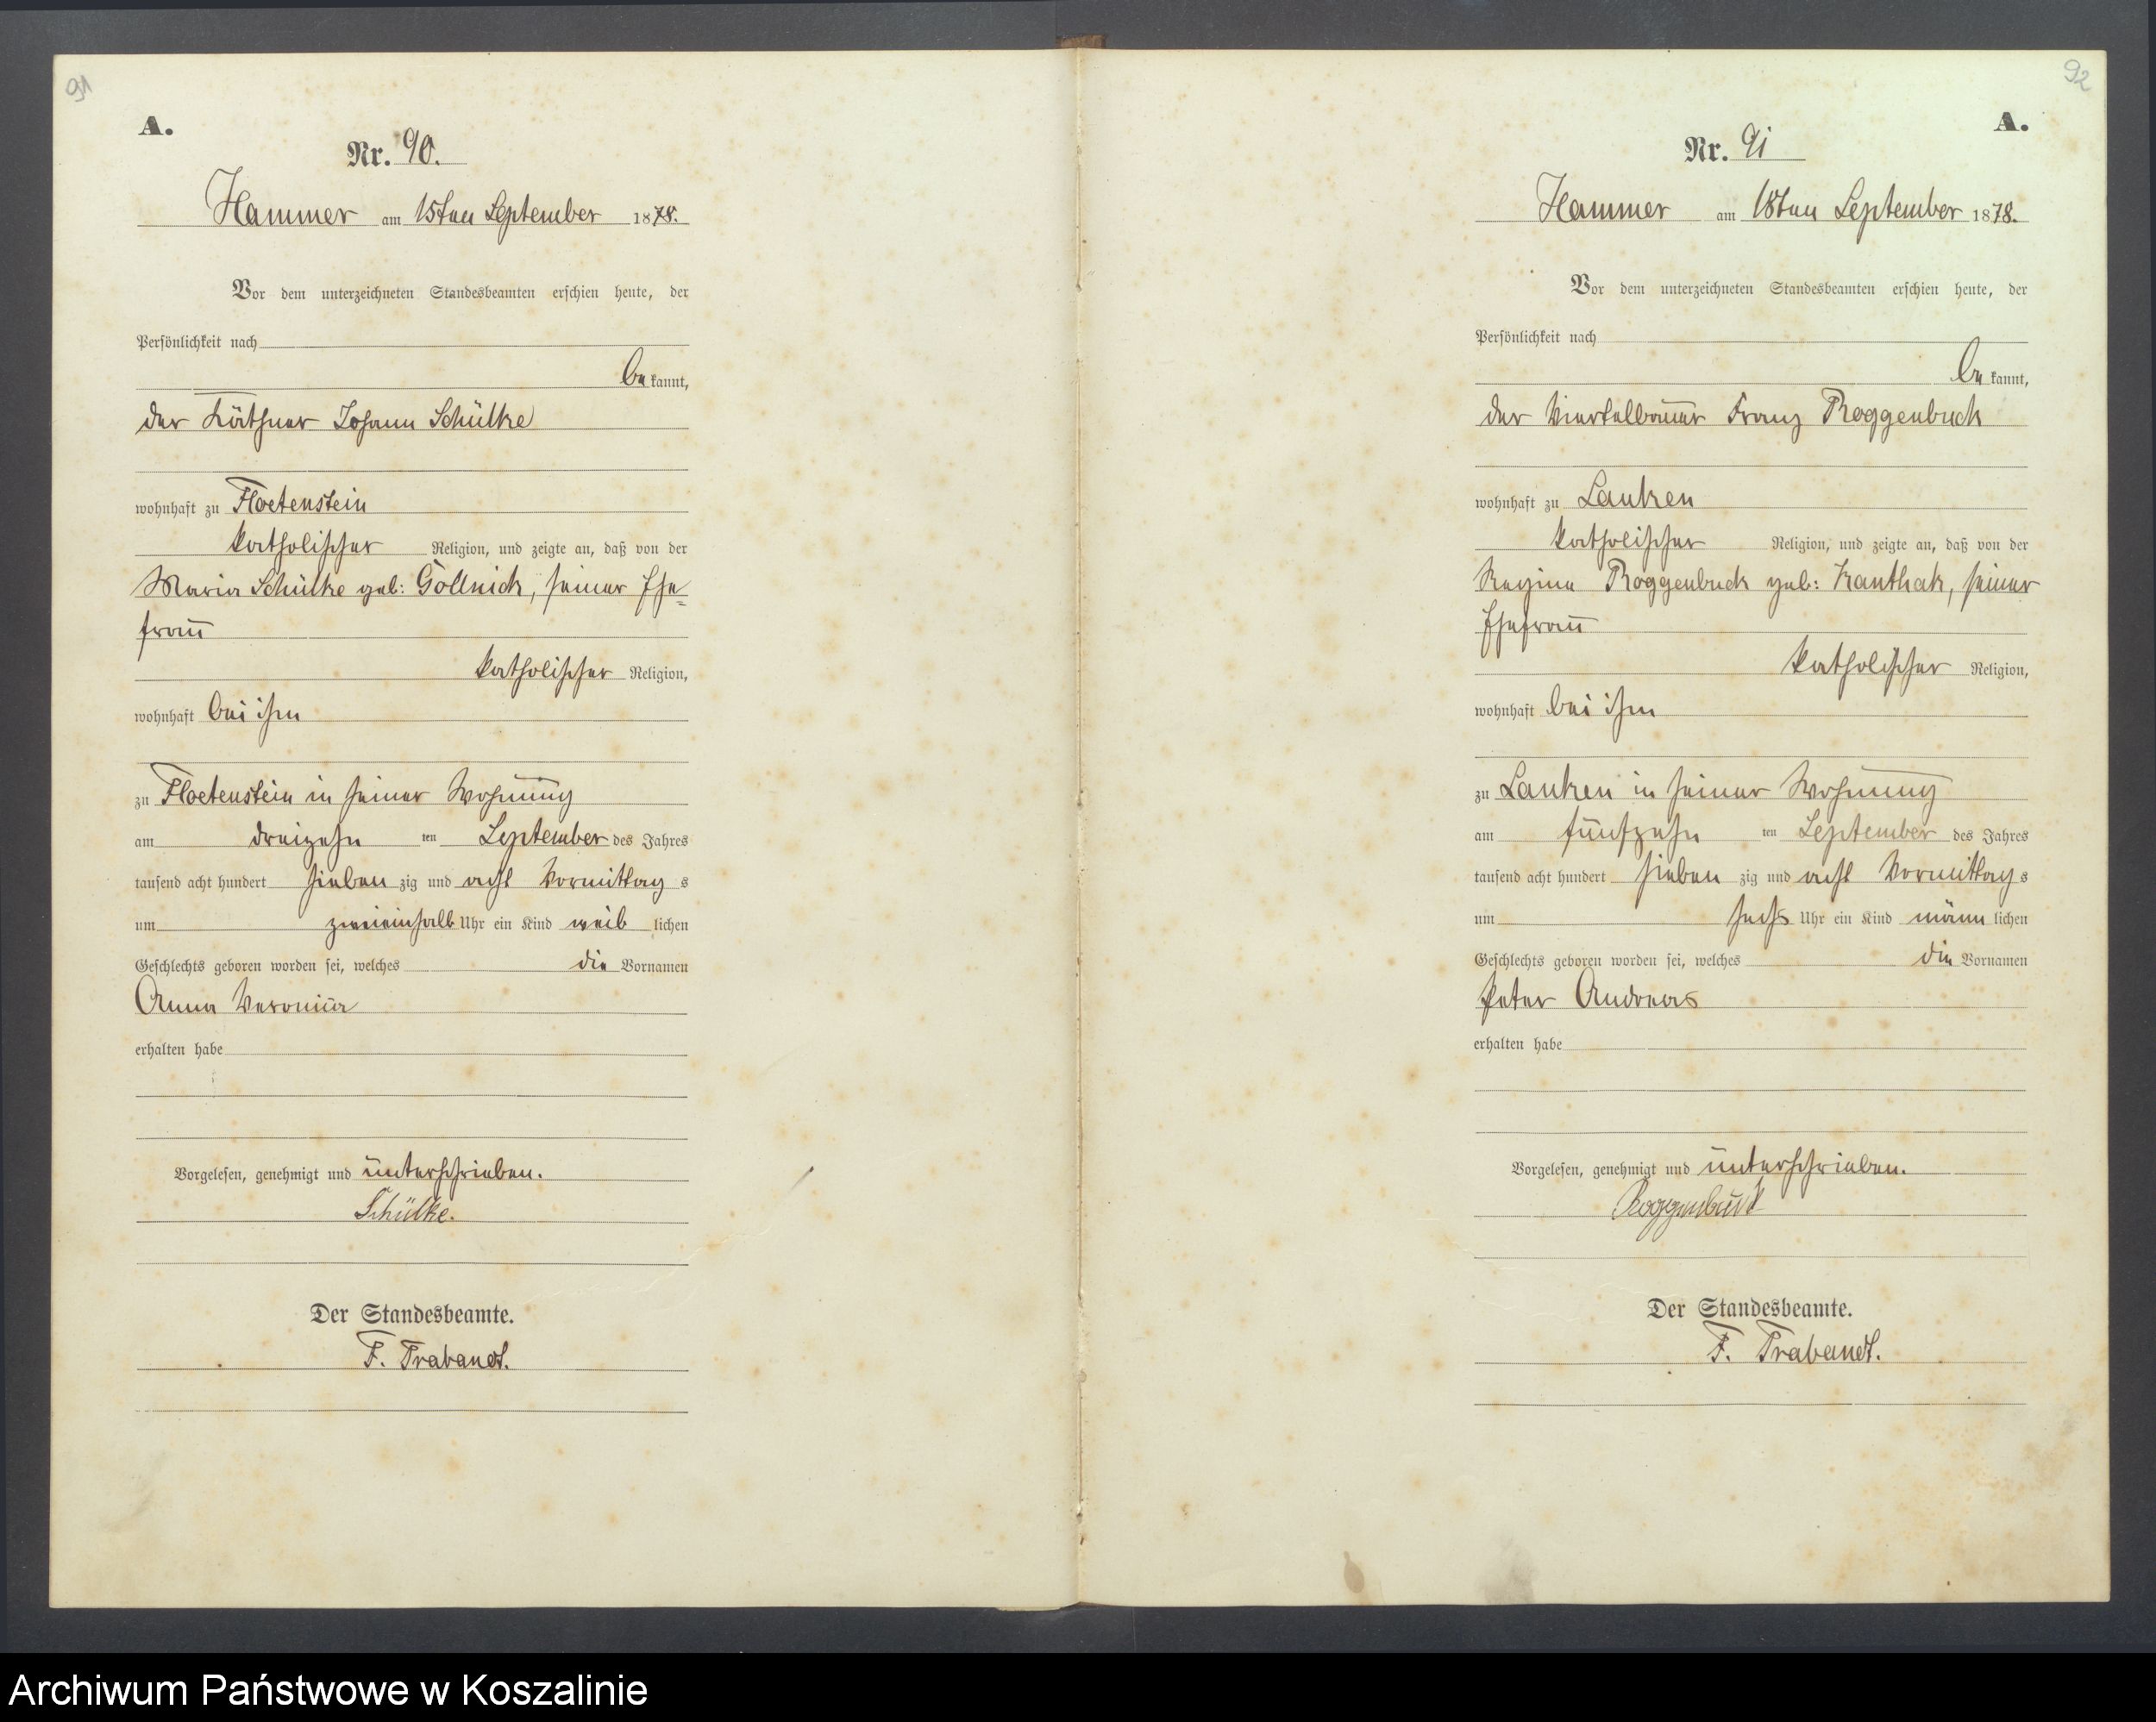 91
A.
Nr. 90.
Hammer am 15ten September 1878.
Vor dem unterzeichneten Standesbeamten erschien heute, der
Persönlichkeit nach
bekannt,
der Käthner Johann Schülke
wohnhaft zu Floetenstein
katholischer Religion, und zeigte an, daß von der
Maria Schülke geb: Gollnick, seiner Ehe=
frau
katholischer Religion,
wohnhaft bei ihm
zu Floetenstein in seiner Wohnung
am dreizehn ten September des Jahres
tausend acht hundert sieben zig und acht Vormittag s
um zweieinhalb Uhr ein Kind weib lichen
Geschlechts geboren worden sei, welches die Vornamen
Anna Veronica
erhalten habe
Vorgelesen, genehmigt und unterschrieben.
Schülke.
Der Standesbeamte.
F. Trabandt.
92
A.
Nr. 91
Hammer am 18ten September 1878.
Vor dem unterzeichneten Standesbeamten erschien heute, der
Persönlichkeit nach
bekannt,
der Viertelbauer Franz Roggenbuck
wohnhaft zu Lanken
katholischer Religion, und zeigte an, daß von der
Regina Roggenbuck geb: Kanthak, seiner
Ehefrau
katholischer Religion,
wohnhaft bei ihm
zu Lanken in seiner Wohnung
am fünfzehn ten September des Jahres
tausend acht hundert sieben zig und acht Vormittag s
um sechs Uhr ein Kind männ lichen
Geschlechts geboren worden sei, welches die Vornamen
Peter Andreas
erhalten habe
Vorgelesen, genehmigt und unterschrieben.
Roggenbuck
Der Standesbeamte.
F. Trabandt.
Archiwum Państwowe w Koszalinie